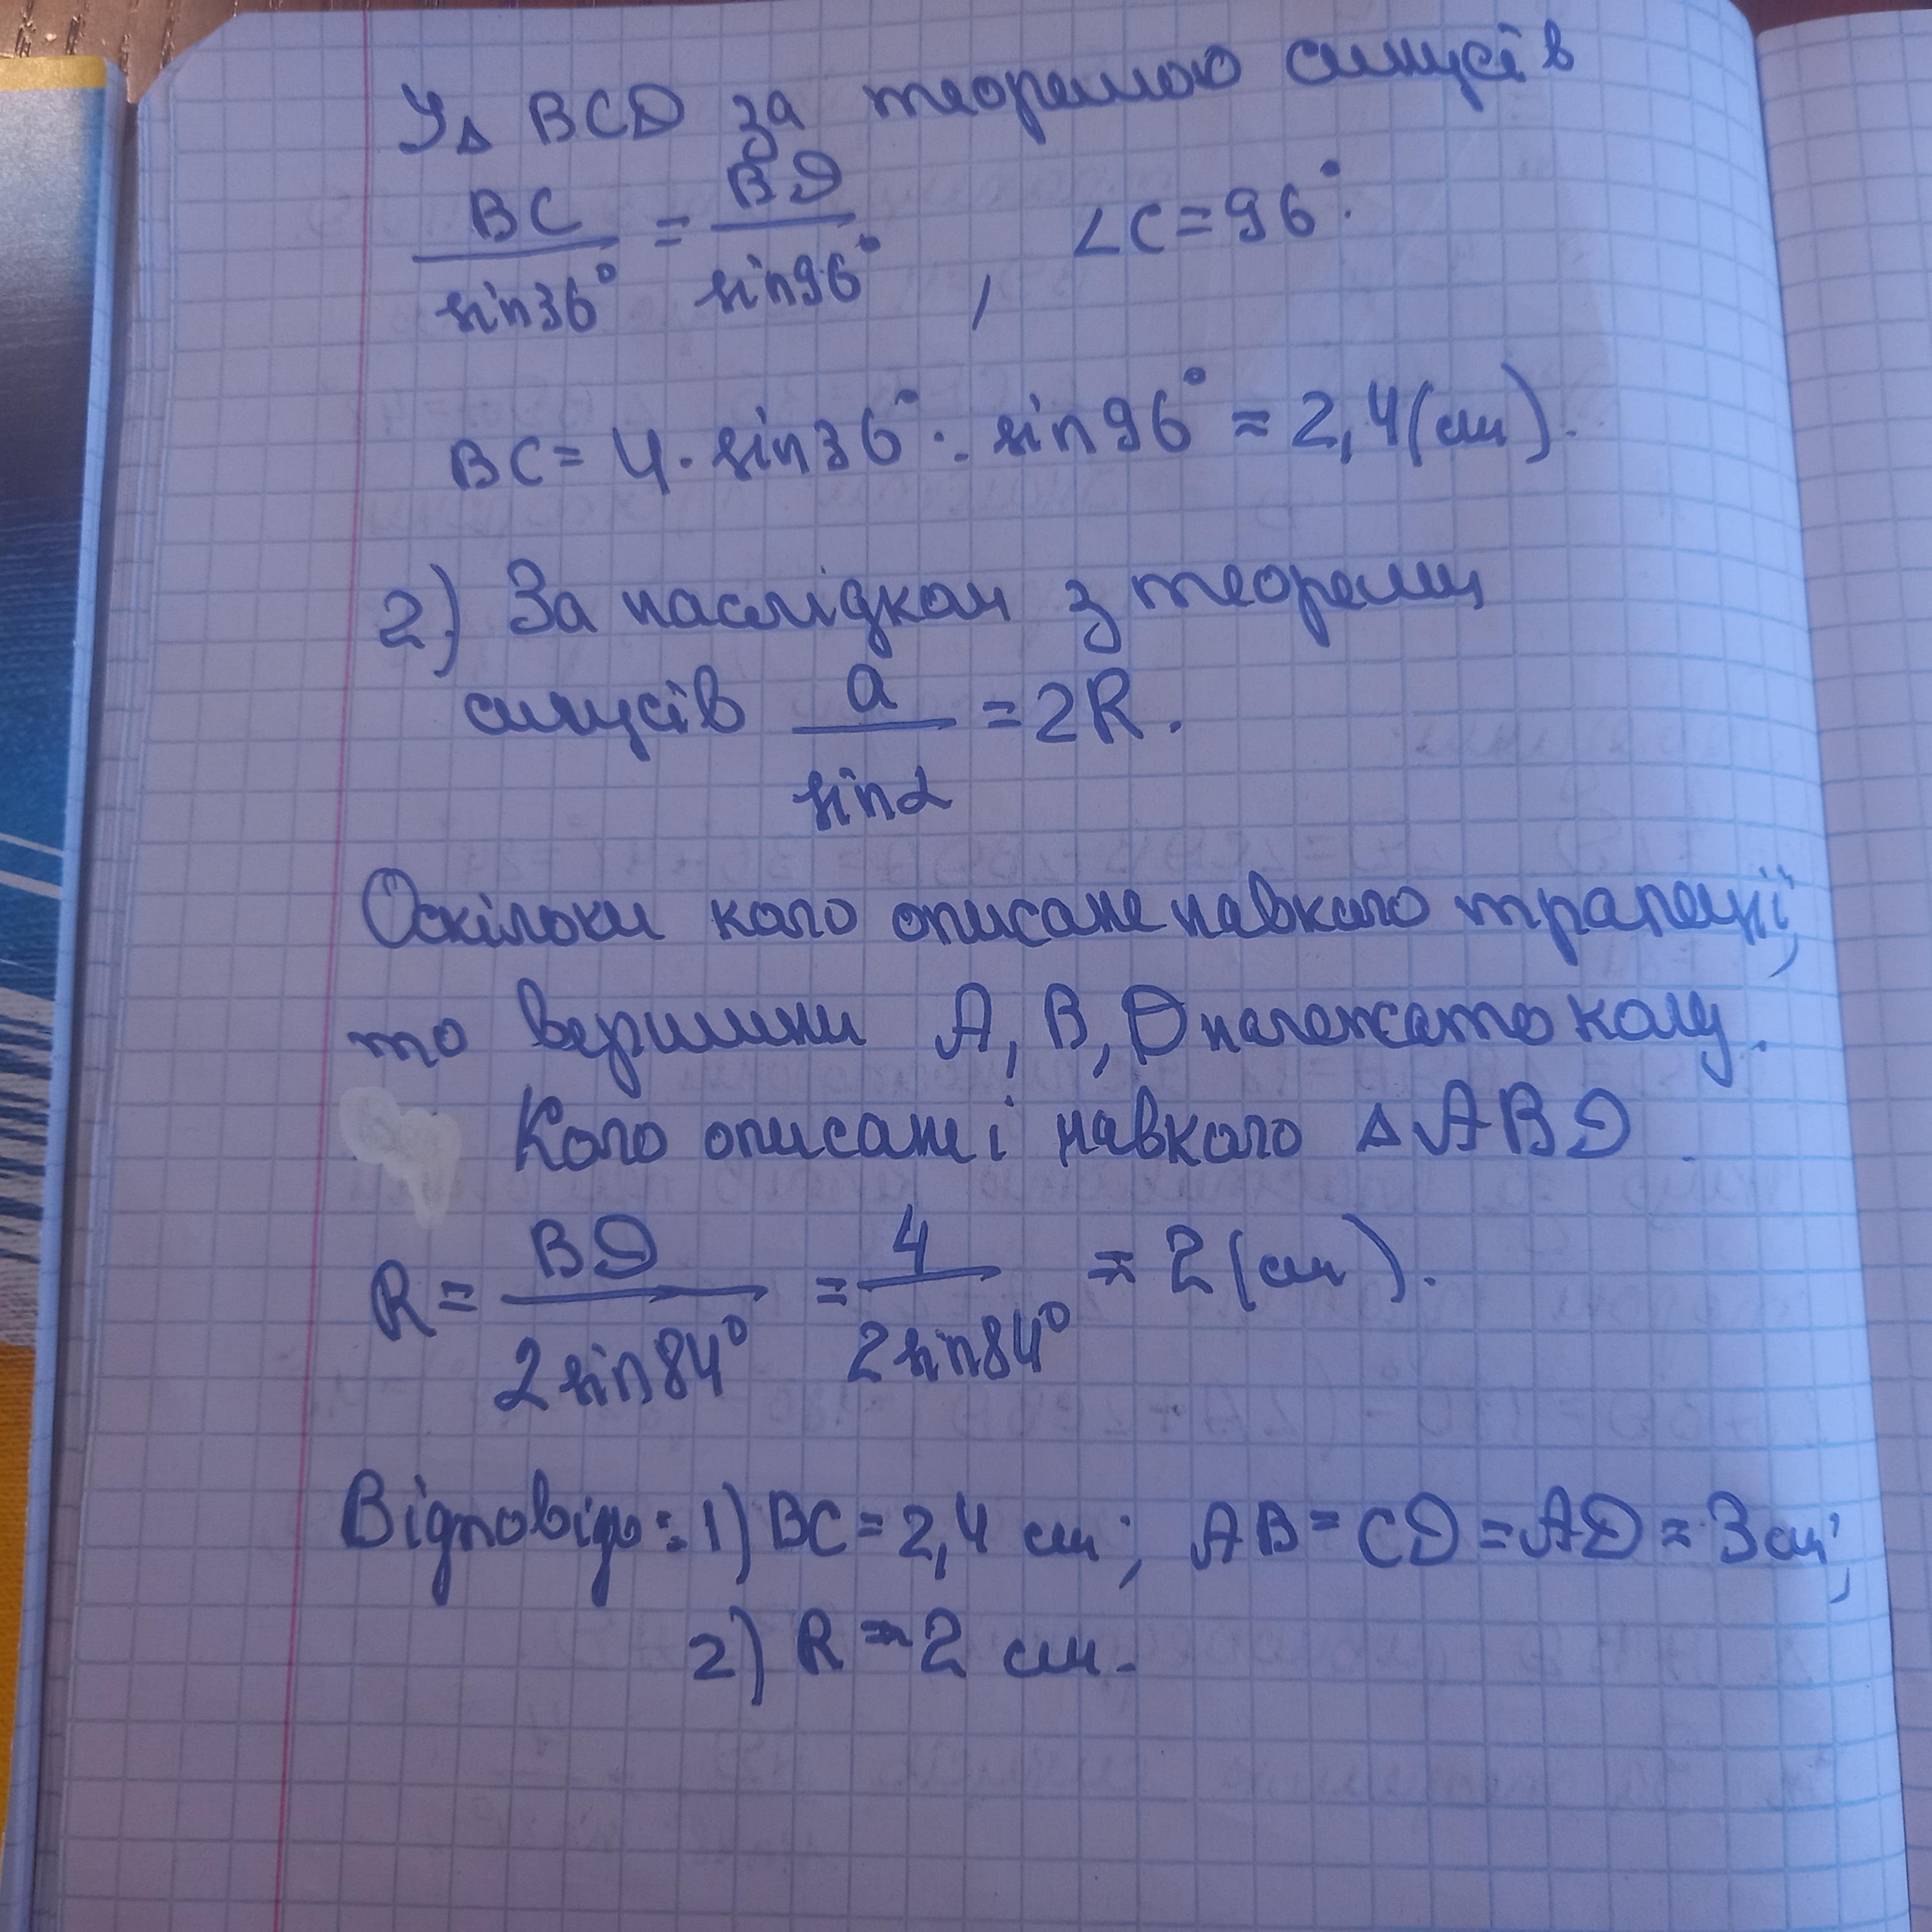 У △ BCD за теоремою синусів
BC/sin36° = BD/sin96°, ∠C=96°.
BC = 4·sin36° : sin96° ≈ 2,4(см).
2) За наслідком з теореми
синусів a/sinα = 2R.
Оскільки коло описане навколо трапеції,
то вершини A, B, D належать колу.
Коло описане і навколо △ABD.
R = BD/2sin84° = 4/2sin84° ≈ 2(см).
Відповідь: 1) BC = 2,4 см; AB = CD = AD ≈ 3см;
2) R ≈ 2 см.